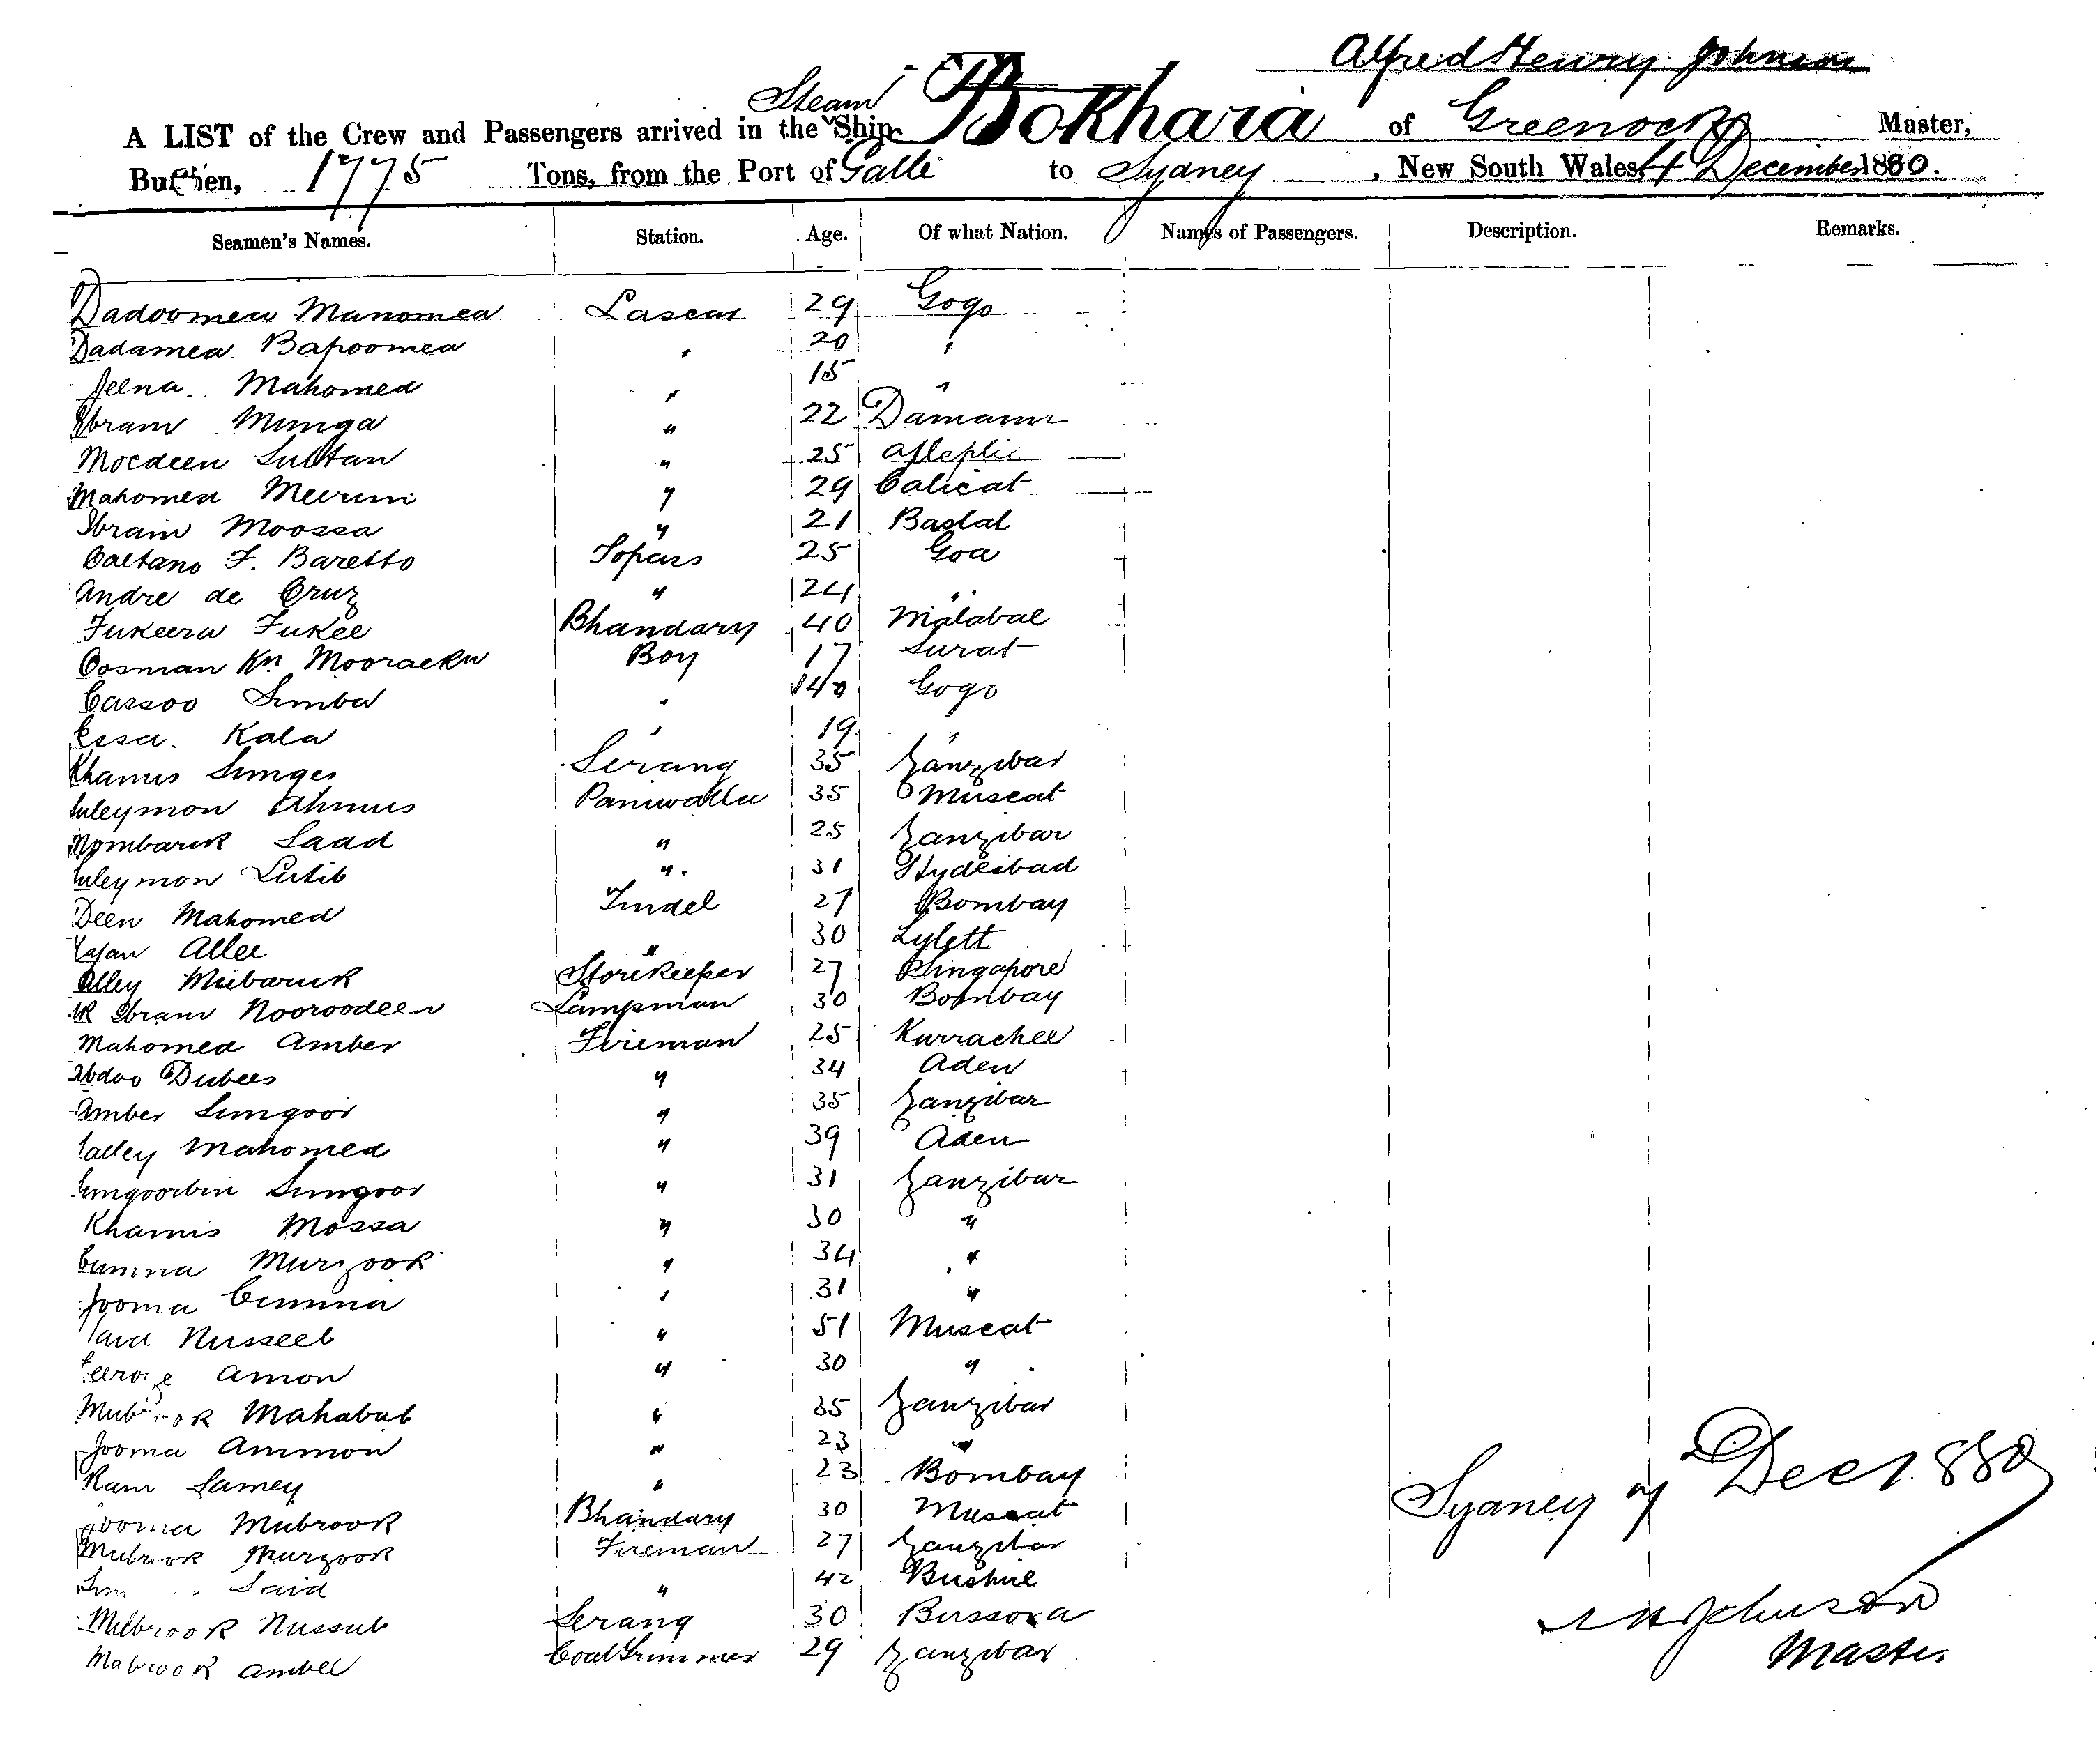 Alfred Henry Johnson
A LIST of the Crew and Passengers arrived in the Steam Ship Bokhara of Greenock Master,
Burthen, 1775 Tons, from the Port of Galle to Sydney, New South Wales, 4 December 1880.
Seamen's Names. Station. Age. Of what Nation. Names of Passengers. Description. Remarks.
Dadoomea Manomea Lascar 29 Gogo
Dadamea Bapoomea " 20 "
Jeena Mahomed " 15 "
Ebram Munga " 22 Damaun
Mocdeen Sultan " 25
Mahomed " 29 Calicat
Ebraim Moossa " 21
Caetano F. Baretto Topass 25 Goa
Andre de Cruz " 24 "
Fukeera Fukee Bhandary 40 Malabal
Oosman Kn Mooraekn Boy 17 Surat
Cassoo Simba " 40 Gogo
Essa Kala " 19 "
Khamis Simges Serang 35 Zanzibar
Suleymon Ahmus Paniwalla 35 Muscat
Mombaruk Saad " 25 Zanzibar
Suleymon Lutib " 31 Hydesbad
Deen Mahomed Tindel 27 Bombay
Allee " 30 Lylett
Alley Mubaruk Storekeeper 27 Singapore
Ebram Nooroodeen Lampman 30 Bombay
Mahomed Amber Fireman 25 Kurrachee
Abdoo Dubees " 34 Aden
Amber Simgoor " 35 Zanzibar
Valley Mahomed " 39 Aden
Simgoorbin Simgoor " 31 Zanzibar
Khamis Mossa " 30 "
Cumma Murzook " 34 "
Jooma Cumma " 31 "
Said Nusseeb " 51 Muscat
Amon " 30 "
Mubrook Mahabub " 35 Zanzibar
Jooma Ammon " 23 "
Ram Samey " 23 Bombay
Jooma Mubrook Bhandary 30 Muscat
Mubrook Murzook Fireman 27 Zanzibar
Said " 42 Bushire
Mubrook Nussub Serang 30 Bussora
Mabrook Ambee Coal Trimmer 29 Zanzibar
Sydney 4 Dec 1880
A H Johnson
Master